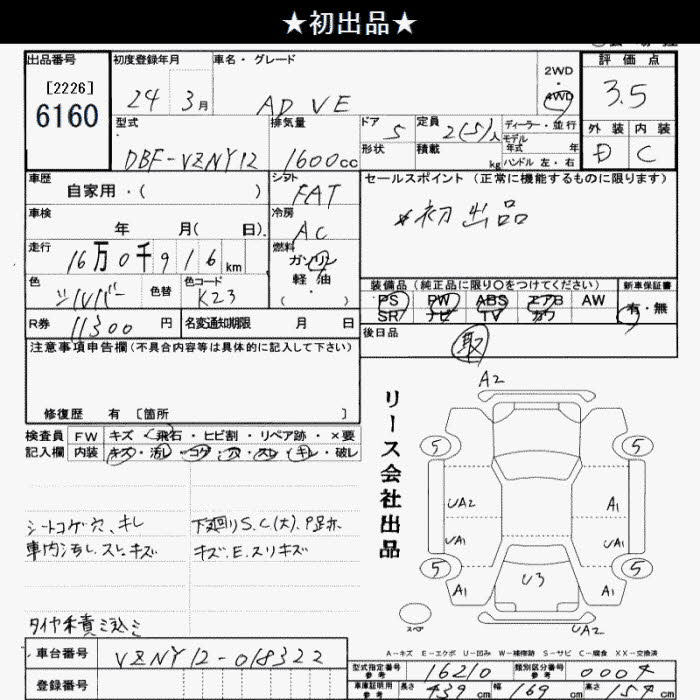 ★初出品★
出品番号 初度登録年月 車名・グレード 評価点
[2226]
6160
24 3月 AD VE
2WD
4WD
3.5
型式 排気量 ドア 定員 ディーラー・並行 外装 内装
DBF-VZNY12 1600cc 5 2(5)人 モデル年式 年 D C
形状 積載 kg ハンドル 左・右
車歴 シフト セールスポイント (正常に機能するものに限ります)
自家用・( ) FAT
★初出品
車検 冷房
年 月( 日) AC
走行 燃料
16万0千916km ガソリン
軽油
( ・ )
色 色替 色コード 装備品 (純正品に限り〇をつけてください) 新車保証書
シルバー K23 PS PW ABS エアB AW 有・無
SR ナビ TV カワ
R券 11300円 名変通知期限 月 日 後日品
取
注意事項申告欄(不具合内容等は具体的に記入して下さい)
修復歴 有 [箇所 ]
検査員 FW キズ・飛石・ヒビ割・リペア跡・×要
記入欄 内装 キズ・汚し・コゲ・穴・スレ・キレ・破レ
シートコゲ穴、キレ
車内汚し、スレ、キズ
下廻りS.C(大).P足ホ
キズ.E.スリキズ
タイヤ積込ミ
リース会社出品
A2
5 5
UA2 A1
UA1 UA1
5 5
A1 U3 A1
スペア UA2
A-キズ E-エクボ U-凹み W-補修跡 S-サビ C-腐食 XX-交換済
車台番号 VZNY12-018322
登録番号
型式指定番号 参考 16210 類別区分番号 参考 0004
車庫証明用 参考 長さ 439cm 幅 169cm 高さ 151cm